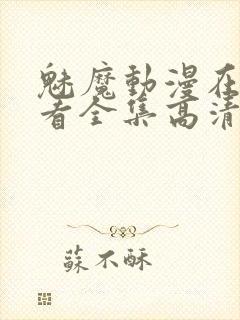 魅魔動漫在
看全集高清
蘇不酥